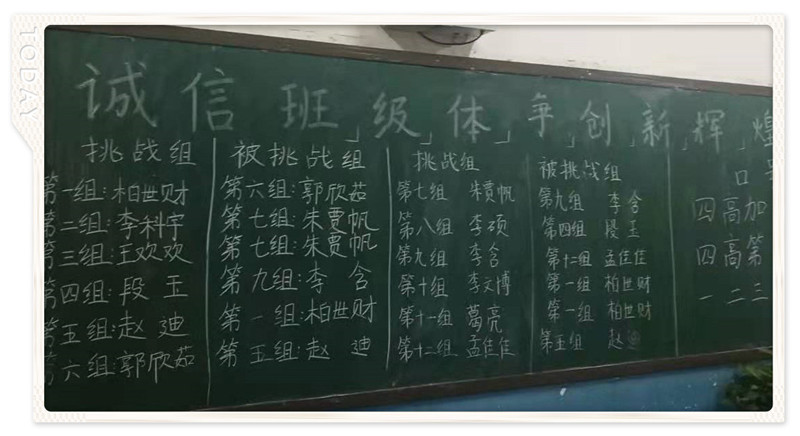 TODAY
诚信班级体争创新辉煌
挑战组
第一组:柏世财
第二组:李科宇
第三组:王欢欢
第四组:段玉
第五组:赵迪
第六组:郭欣茹
被挑战组
第六组:郭欣茹
第七组:朱贾帆
第七组:朱贾帆
第九组:李含
第一组:柏世财
第五组:赵迪
挑战组
第七组 朱贾帆
第八组 李硕
第九组 李含
第十组 李文博
第十一组 葛亮
第十二组 孟佳佳
被挑战组
第九组 李含
第四组 段玉
第十二组 孟佳佳
第一组 柏世财
第一组 柏世财
第五组 赵迪
口
四高加
四高第
一二三